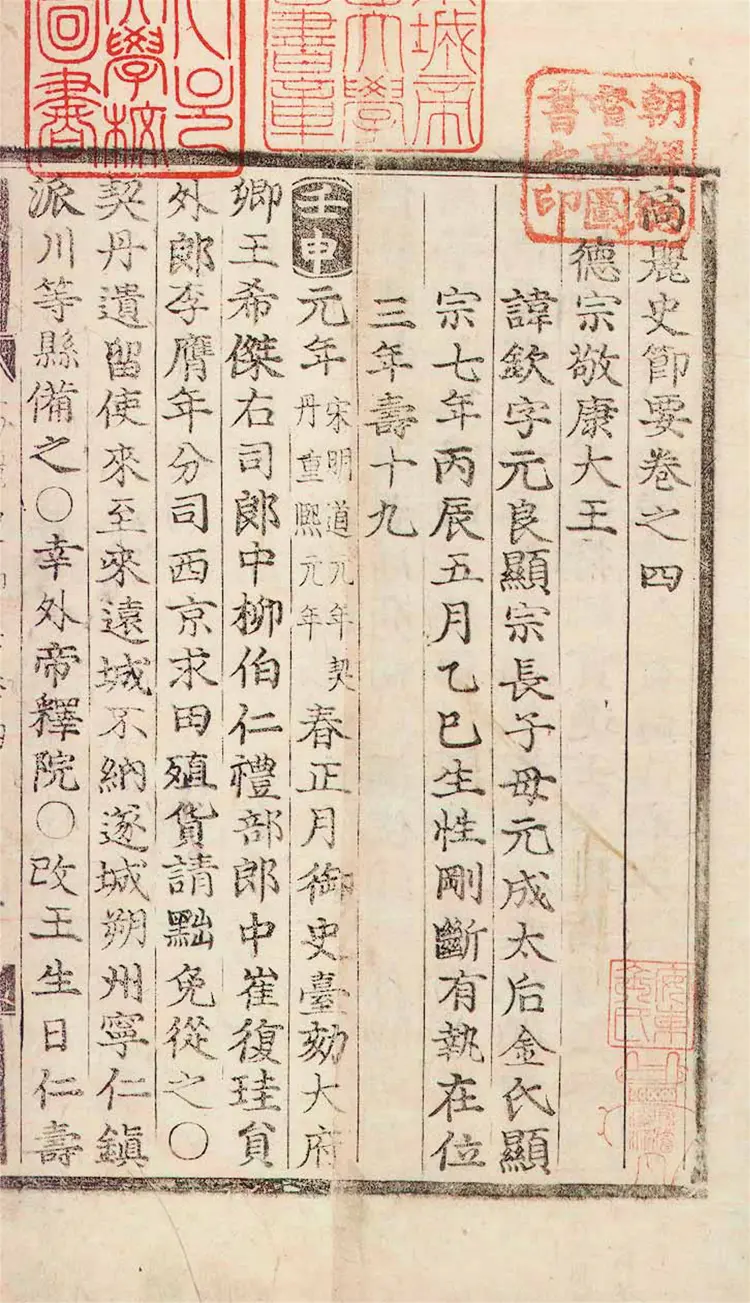 高麗史節要卷之四
德宗敬康大王
諱欽字元良顯宗長子母元成太后金氏顯
宗七年丙辰五月乙巳生性剛斷有執在位
三年壽十九
壬申元年宋明道元年契丹重熙元年春正月御史臺劾大府
卿王希傑右司郎中柳伯仁禮部郎中崔復珪貟
外郎李膺年分司西京求田殖貨請黜免從之○
契丹遺留使來至來遠城不納遂城朔州寧仁鎮
派川等縣備之○幸外帝釋院○改王生日仁壽
朝鮮總督府圖書之印
城帝大學圖書章
大學校圖書
安東金氏